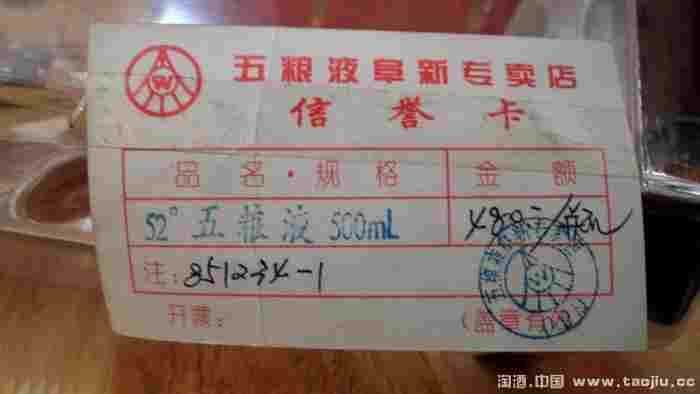 五粮液阜新专卖店
信誉卡
品名·规格 金额
52° 五粮液 500mL 480元/瓶
注: 851234-1
开票: (盖章有
五粮液
淘酒.中国 www.taojiu.cc